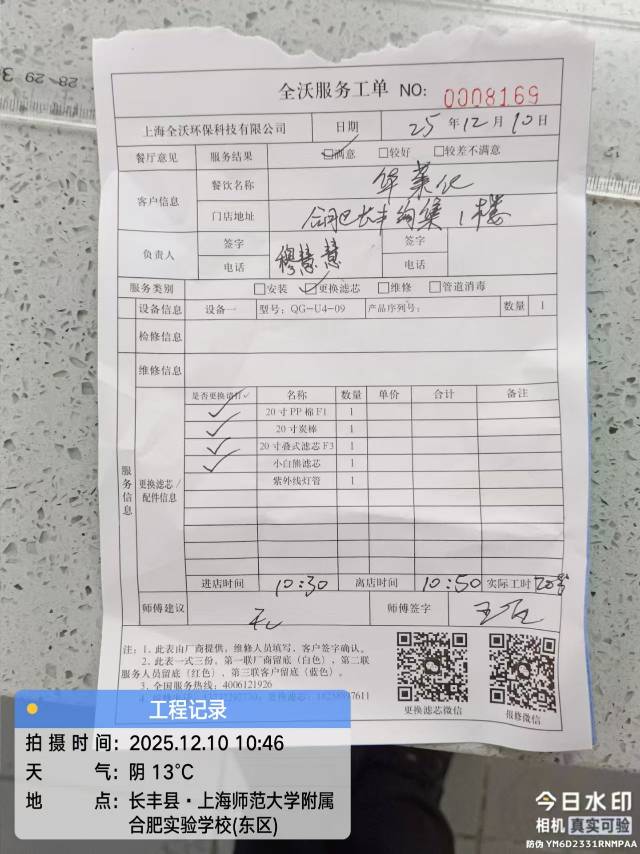 3 29 28
全沃服务工单 NO: 0008169
上海全沃环保科技有限公司 日期 25年12月10日
餐厅意见 服务结果 ☑满意 □较好 □较差不满意
客户信息 餐饮名称 华莱仕
门店地址 合肥长丰 集1楼
负责人 签字 穆慧慧 签字
电话 电话
服务类别 □安装 ☑更换滤芯 □维修 □管道消毒
设备信息 设备一 型号: QG-U4-09 产品序列号: 数量 1
检修信息
维修信息
服务信息
更换滤芯/配件信息
是否更换请打✓ 名称 数量 单价 合计 备注
✓ 20寸PP棉F1 1
✓ 20寸炭棒 1
✓ 20寸叠式滤芯F3 1
✓ 小白熊滤芯 1
紫外线灯管 1
进店时间 10:30 离店时间 10:50 实际工时
师傅建议 无 师傅签字
注: 1、此表由厂商提供, 维修人员填写, 客户签字确认。
2、此表一式三份, 第一联厂商留底(白色), 第二联
服务人员留底(红色), 第三联客户留底(蓝色)。
3、全国服务热线: 4006121926
更换滤芯微信 报修微信
工程记录
拍摄时间: 2025.12.10 10:46
天气: 阴 13℃
地点: 长丰县·上海师范大学附属
合肥实验学校(东区)
今日水印
相机 真实可验
防伪 YM6D2331RNMPAA